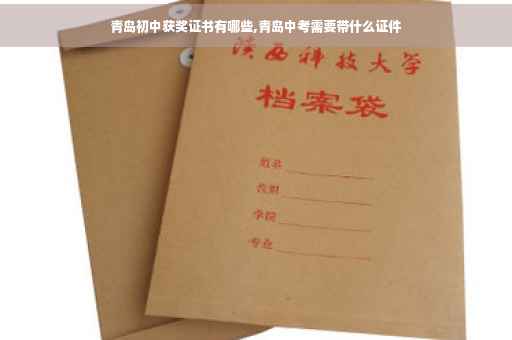 青岛初中获奖证书有哪些,青岛中考需要带什么证件
陕西科技大学
档案袋
姓名
学院
专业